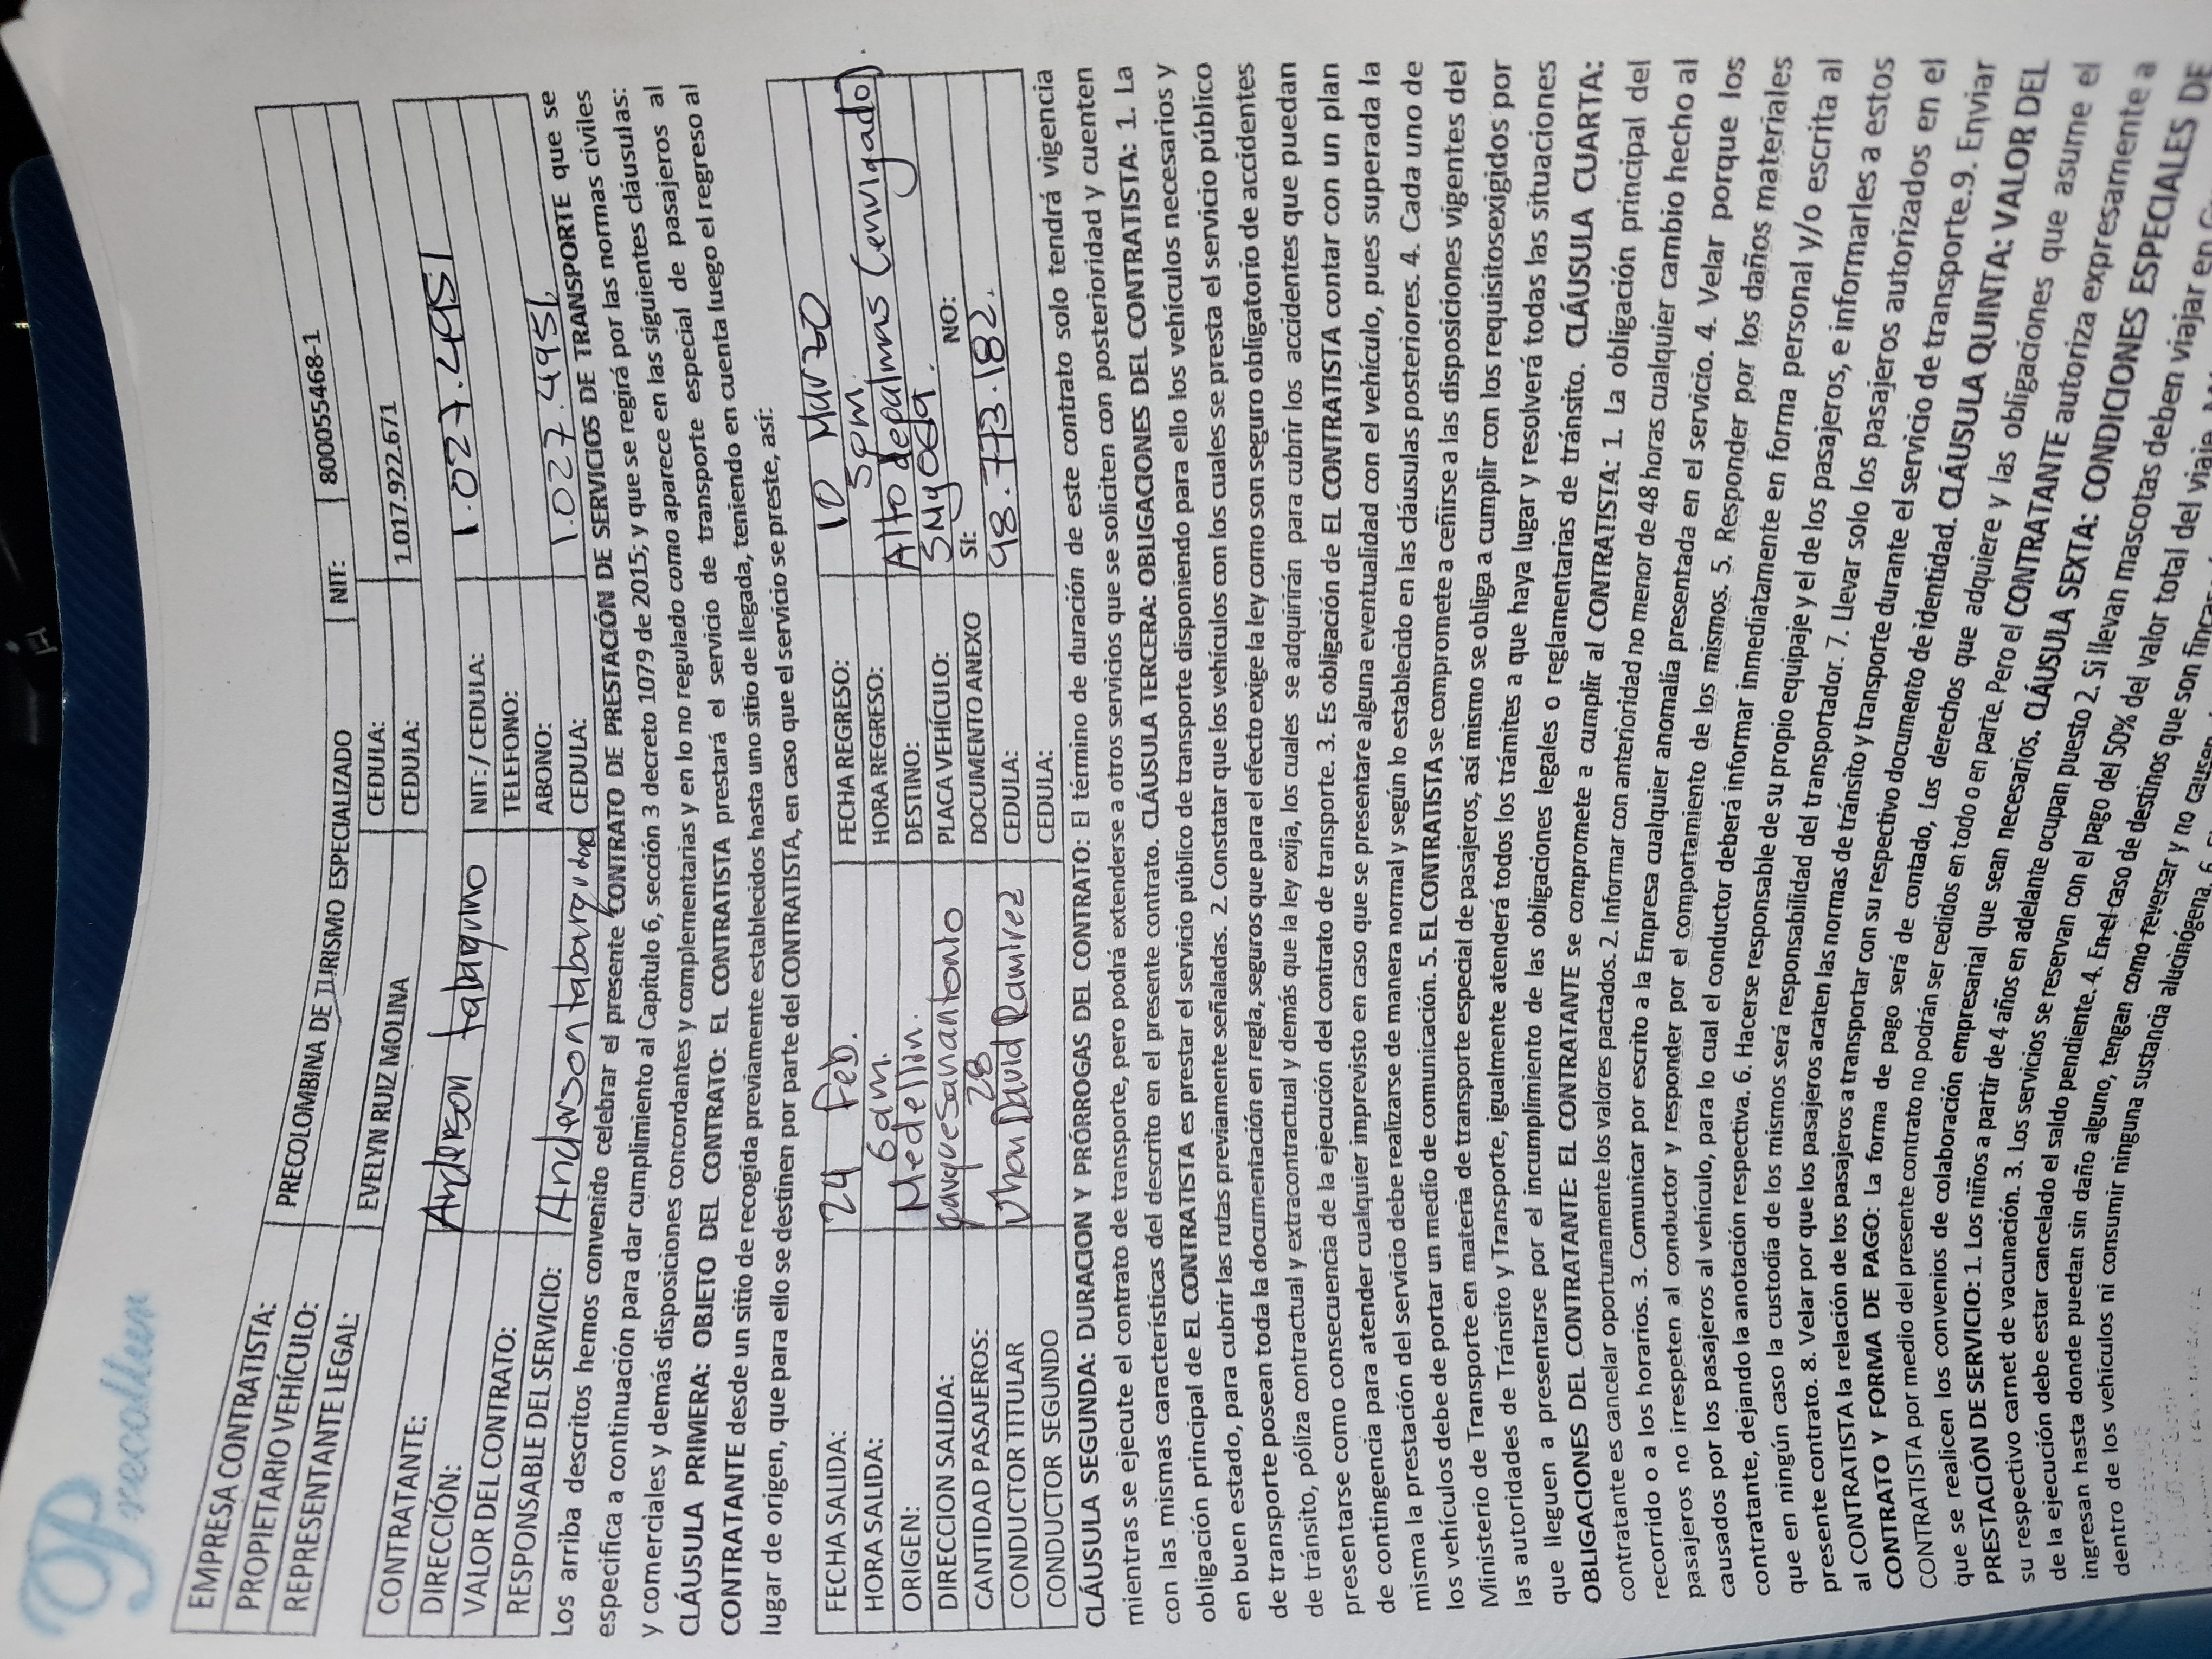 Precolbun
EMPRESA CONTRATISTA: PRECOLOMBINA DE TURISMO ESPECIALIZADO NIT: 800055468-1
PROPIETARIO VEHÍCULO: CEDULA:
REPRESENTANTE LEGAL: EVELYN RUIZ MOLINA CEDULA: 1.017.922.671
CONTRATANTE: Anderson tabarquino NIT:/ CEDULA: 1.027.4951
DIRECCIÓN: TELEFONO:
VALOR DEL CONTRATO: ABONO:
RESPONSABLE DEL SERVICIO: Anderson CEDULA: 1.027.4951
Los arriba descritos hemos convenido celebrar el presente CONTRATO DE PRESTACIÓN DE SERVICIOS DE TRANSPORTE que se
especifica a continuación para dar cumplimiento al Capítulo 6, sección 3 decreto 1079 de 2015; y que se regirá por las normas civiles
y comerciales y demás disposiciones concordantes y complementarias y en lo no regulado como aparece en las siguientes cláusulas:
CLÁUSULA PRIMERA: OBJETO DEL CONTRATO: EL CONTRATISTA prestará el servicio de transporte especial de pasajeros al
CONTRATANTE desde un sitio de recogida previamente establecidos hasta uno sitio de llegada, teniendo en cuenta luego el regreso al
lugar de origen, que para ello se destinen por parte del CONTRATISTA, en caso que el servicio se preste, así:
FECHA SALIDA: 24 Feb. FECHA REGRESO: 10 Mar 20
HORA SALIDA: 6am. HORA REGRESO: 5pm.
ORIGEN: Medellin. DESTINO: Alto de palmas (envigado).
DIRECCION SALIDA: parque san antonio PLACA VEHÍCULO: SMY 089.
CANTIDAD PASAJEROS: 28 DOCUMENTO ANEXO SI: NO:
CONDUCTOR TITULAR Jhon David Ramirez CEDULA: 98.773.182.
CONDUCTOR SEGUNDO CEDULA:
CLÁUSULA SEGUNDA: DURACION Y PÓRROGAS DEL CONTRATO: El término de duración de este contrato solo tendrá vigencia
mientras se ejecute el contrato de transporte, pero podrá extenderse a otros servicios que se soliciten con posterioridad y cuenten
con las mismas características del descrito en el presente contrato. CLÁUSULA TERCERA: OBLIGACIONES DEL CONTRATISTA: 1. La
obligación principal de EL CONTRATISTA es prestar el servicio público de transporte disponiendo para ello los vehículos necesarios y
en buen estado, para cubrir las rutas previamente señaladas. 2. Constatar que los vehículos con los cuales se presta el servicio público
de transporte posean toda la documentación en regla, seguros que para el efecto exige la ley como son seguro obligatorio de accidentes
de tránsito, póliza contractual y extracontractual y demás que la ley exija, los cuales se adquirirán para cubrir los accidentes que puedan
presentarse como consecuencia de la ejecución del contrato de transporte. 3. Es obligación de EL CONTRATISTA contar con un plan
de contingencia para atender cualquier imprevisto en caso que se presentare alguna eventualidad con el vehículo, pues superada la
misma la prestación del servicio debe realizarse de manera normal y según lo establecido en las cláusulas posteriores. 4. Cada uno de
los vehículos debe de portar un medio de comunicación. 5. EL CONTRATISTA se compromete a ceñirse a las disposiciones vigentes del
Ministerio de Transporte en materia de transporte especial de pasajeros, así mismo se obliga a cumplir con los requisitosexigidos por
las autoridades de Tránsito y Transporte, igualmente atenderá todos los trámites a que haya lugar y resolverá todas las situaciones
que lleguen a presentarse por el incumplimiento de las obligaciones legales o reglamentarias de tránsito. CLÁUSULA CUARTA:
OBLIGACIONES DEL CONTRATANTE: EL CONTRATANTE se compromete a cumplir al CONTRATISTA: 1. La obligación principal del
contratante es cancelar oportunamente los valores pactados. 2. Informar con anterioridad no menor de 48 horas cualquier cambio hecho al
recorrido o a los horarios. 3. Comunicar por escrito a la Empresa cualquier anomalía presentada en el servicio. 4. Velar porque los
pasajeros no irrespeten al conductor y responder por el comportamiento de los mismos. 5. Responder por los daños materiales
causados por los pasajeros al vehículo, para lo cual el conductor deberá informar inmediatamente en forma personal y/o escrita al
contratante, dejando la anotación respectiva. 6. Hacerse responsable de su propio equipaje y el de los pasajeros, e informarles a estos
que en ningún caso la custodia de los mismos será responsabilidad del transportador. 7. Llevar solo los pasajeros autorizados en el
presente contrato. 8. Velar por que los pasajeros acaten las normas de tránsito y transporte durante el servicio de transporte.9. Enviar
al CONTRATISTA la relación de los pasajeros a transportar con su respectivo documento de identidad. CLÁUSULA QUINTA: VALOR DEL
CONTRATO Y FORMA DE PAGO: La forma de pago será de contado, Los derechos que adquiere y las obligaciones que asume el
CONTRATISTA por medio del presente contrato no podrán ser cedidos en todo o en parte. Pero el CONTRATANTE autoriza expresamente a
que se realicen los convenios de colaboración empresarial que sean necesarios. CLÁUSULA SEXTA: CONDICIONES ESPECIALES DE
PRESTACIÓN DE SERVICIO: 1. Los niños a partir de 4 años en adelante ocupan puesto 2. Si llevan mascotas deben viajar en
su respectivo carnet de vacunación. 3. Los servicios se reservan con el pago del 50% del valor total del viaje
de la ejecución debe estar cancelado el saldo pendiente. 4. En el caso de destinos que son fincas
ingresan hasta donde puedan sin daño alguno, tengan como reversar y no causen
dentro de los vehículos ni consumir ninguna sustancia alucinógena. 6.